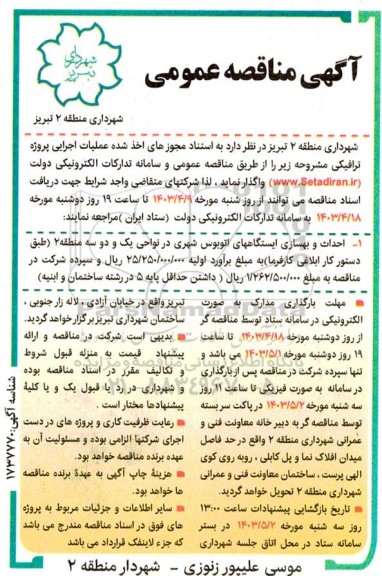 شهرداری تبریز
آگهی مناقصه عمومی
شهرداری منطقه ۲ تبریز
شهرداری منطقه ۲ تبریز در نظر دارد به استناد مجوز های اخذ شده عملیات اجرایی پروژه
ترافیکی مشروحه زیر را از طریق مناقصه عمومی و سامانه تدارکات الکترونیکی دولت
(www.Setadiran.ir) واگذار نماید ، لذا شرکتهای متقاضی واجد شرایط جهت دریافت
اسناد مناقصه می توانند از روز شنبه مورخه ۱۴۰۳/۴/۹ تا ساعت ۱۹ روز دوشنبه مورخه
۱۴۰۳/۴/۱۸ به سامانه تدارکات الکترونیکی دولت (ستاد ایران )مراجعه نمایند:
۱- احداث و بهسازی ایستگاههای اتوبوس شهری در نواحی یک و دو سه منطقه۲ (طبق
دستور کار ابلاغی کارفرما)به مبلغ برآورد اولیه ۲۵/۲۵۰/۰۰۰/۰۰۰ ریال و سپرده شرکت در
مناقصه به مبلغ ۱/۲۶۲/۵۰۰/۰۰۰ ریال ( داشتن حداقل پایه ۵ در رشته ساختمان و ابنیه)
مهلت بارگذاری مدارک به صورت
الکترونیکی در سامانه ستاد توسط مناقصه گر
از روز دوشنبه مورخه ۱۴۰۳/۴/۱۸ تا ساعت
۱۹ روز دوشنبه مورخه ۱۴۰۳/۵/۱ می باشد و
تنها سپرده شرکت در مناقصه پس از بارگذاری
در سامانه به صورت فیزیکی تا ساعت ۱۱ روز
سه شنبه مورخه ۱۴۰۳/۵/۲ در پاکت سر بسته
توسط مناقصه گر به دبیر خانه معاونت فنی و
عمرانی شهرداری منطقه ۲ واقع در حد فاصل
میدان افلاک نما و پل کابلی ، روبه روی کوی
الهی پرست ، ساختمان معاونت فنی و عمرانی
شهرداری منطقه ۲ تحویل خواهد گردید.
تاریخ بازگشایی پیشنهادات ساعت ۱۳:۰۰
روز سه شنبه مورخه ۱۴۰۳/۵/۲ در بستر
سامانه ستاد در محل اتاق جلسه شهرداری
تبریز واقع در خیابان آزادی ، لاله زار جنوبی ،
ساختمان شهرداری تبریز بر گزار خواهد گردید.
بدیهی است شرکت در مناقصه و ارائه
پیشنهاد قیمت به منزله قبول شروط
و تکالیف مقرر در اسناد مناقصه بوده
و شهرداری در رد یا قبول یک و یا کلیهٔ
پیشنهادها مختار است .
رعایت ظرفیت کاری و پروژه های در دست
اجرای شرکتها الزامی بوده و مسئولیت آن به
عهده برنده مناقصه خواهد بود.
هزینهٔ چاپ آگهی به عهدهٔ برنده مناقصه
ها خواهد بود.
سایر اطلاعات و جزئیات مربوط به پروژه
های فوق در اسناد مناقصه مندرج می باشد
که جزء لاینفک قرارداد می باشد
شناسه آگهی: ۱۷۳۷۷۷۰
موسی علیپور زنوزی - شهردار منطقه ۲